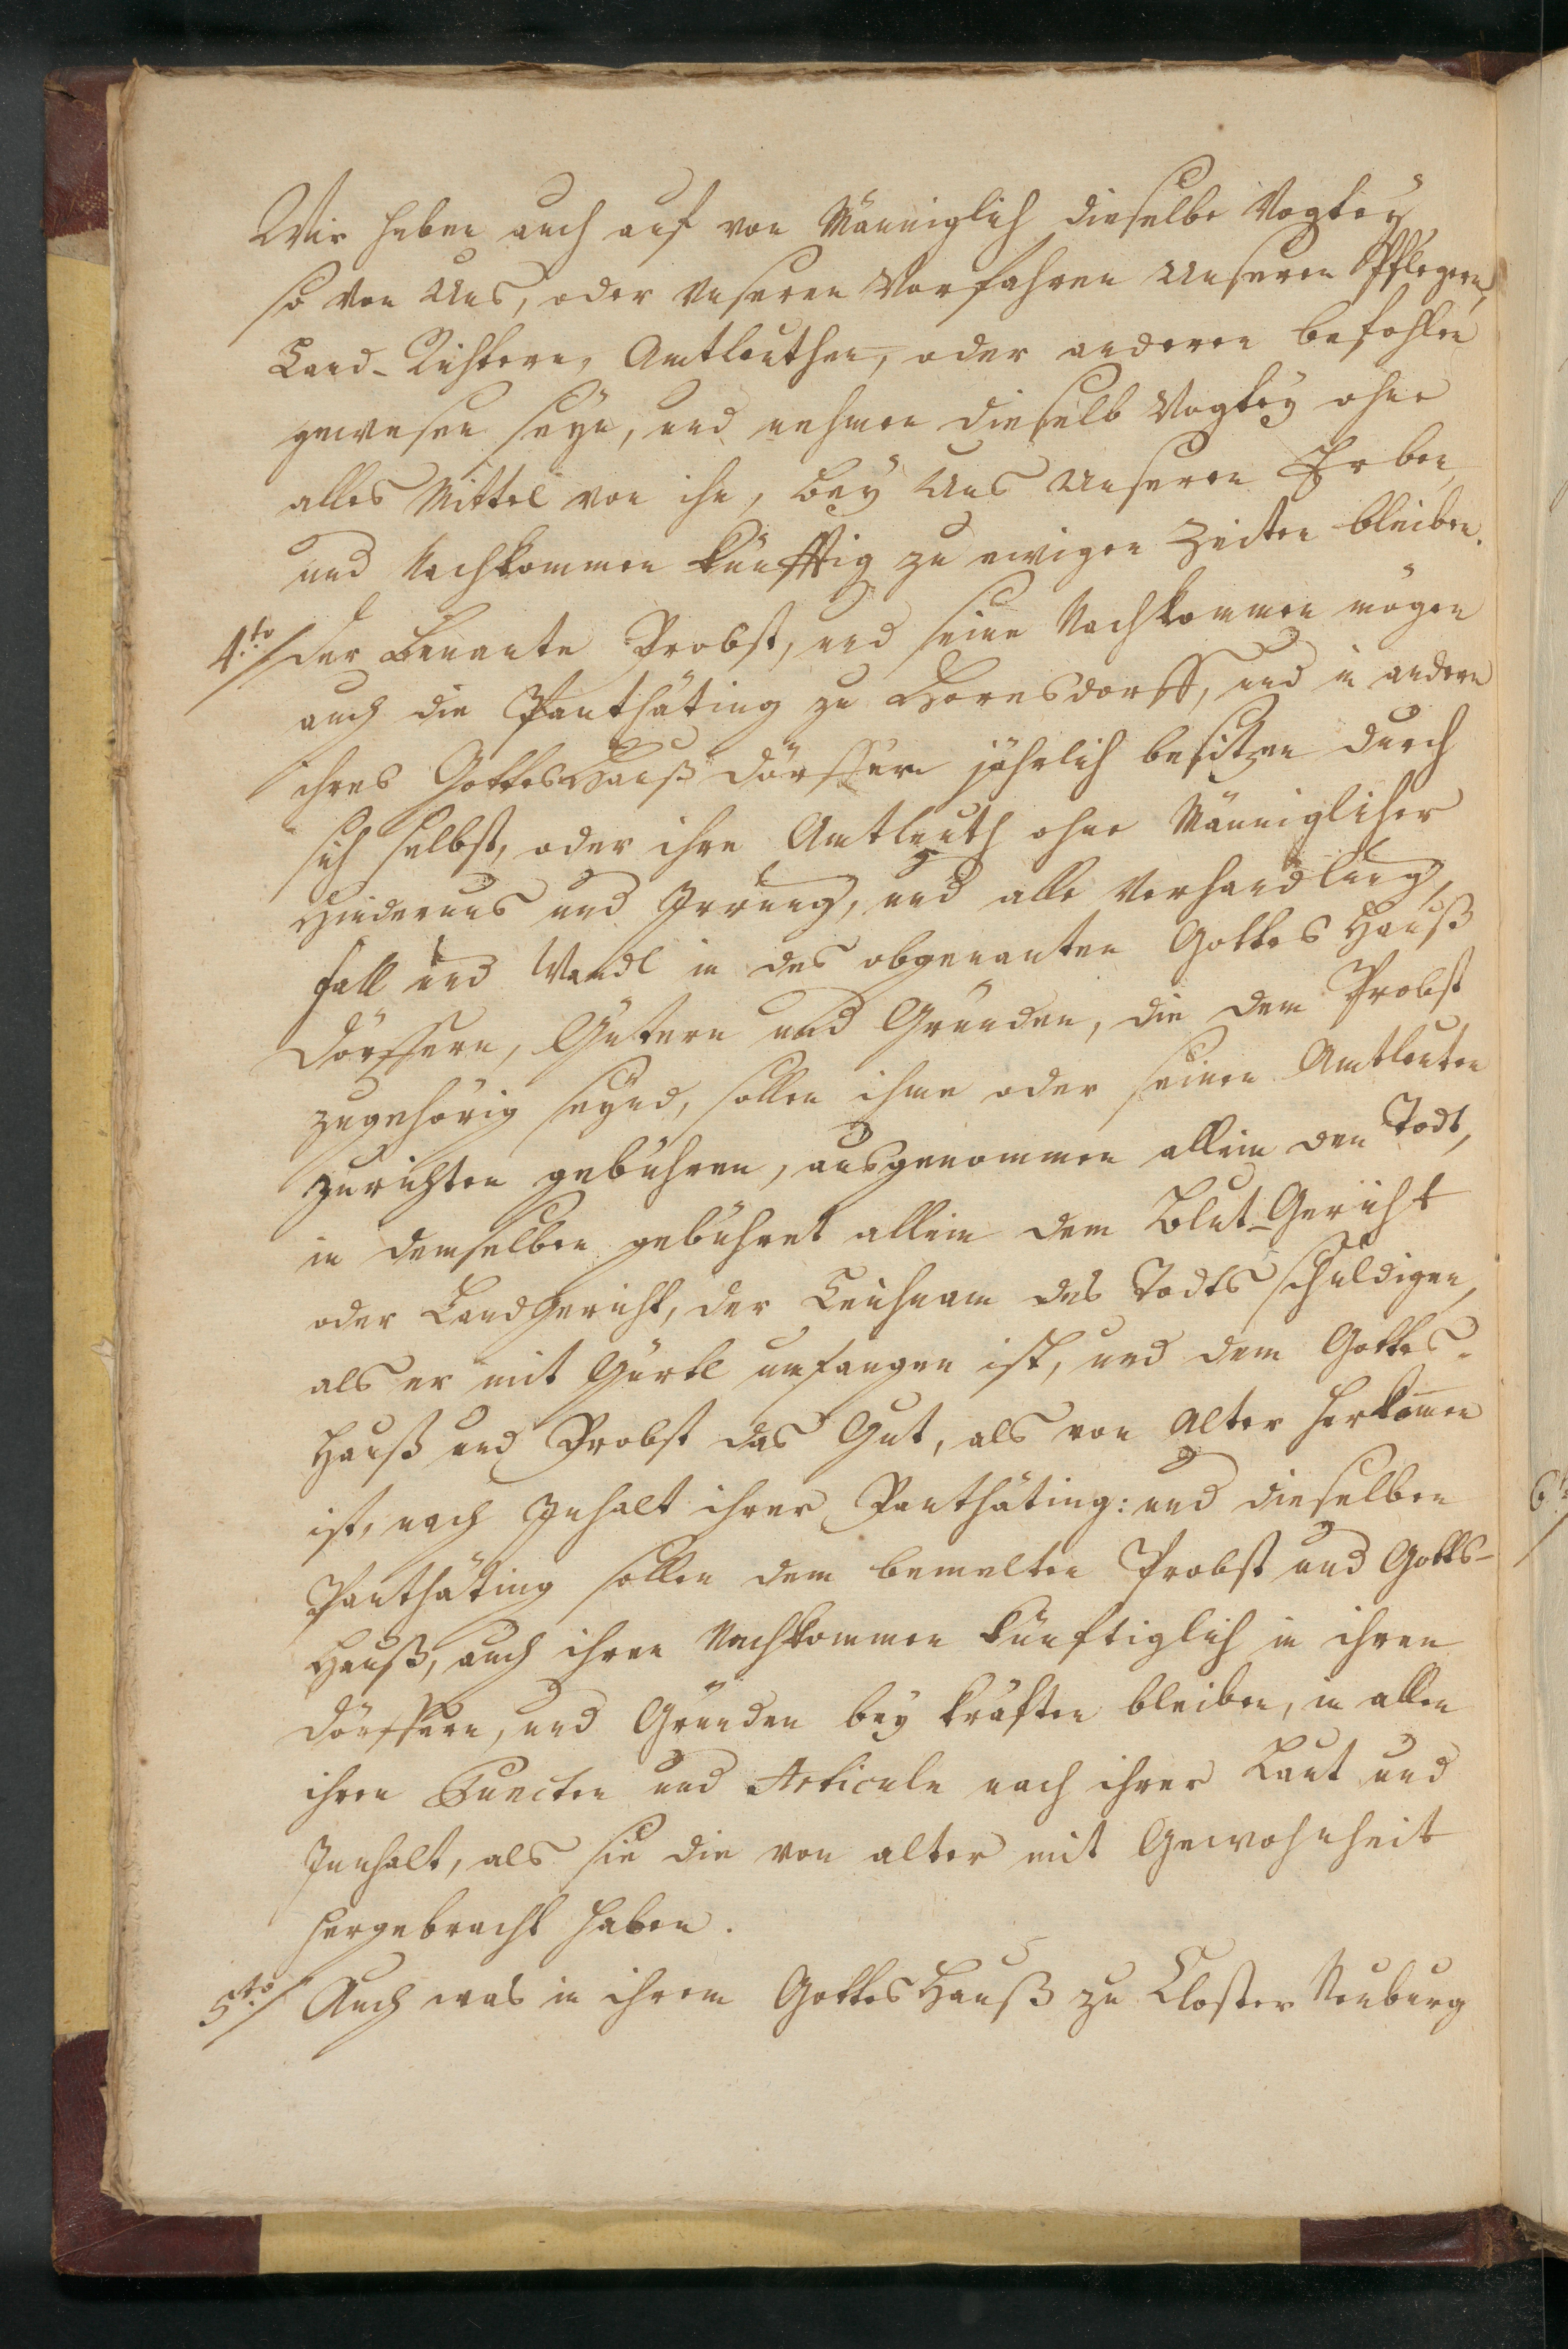 Wir heben auch auf von Männiglich dieselbe Vogtey
so von Uns, oder unseren Vorfahren Unseren Pflegern,
Land-Richtern, Amtleuthen, oder anderen befohlen
gewesen seyn, und nehmen dieselb Vogtey ohne
alles Mittel von ihn, bey Uns Unseren Erben,
und Nachkommen künfftig zu ewigen Zeiten bleiben.
4.to/ Der Benante Probst, und seine Nachkommen mögen
auch die Panthäting zu Hornsdorff, und in andern
ihres GottesHauß dörffern jährlich besitzen durch
sich selbst, oder ihre Amtleuth ohne Männiglicher
Hindernus und Irrung, und alle Verhandlung,
fall und Wandl in des obgenanten Gottes Hauß
Dörffern, Gütern und Gründen, die dem Probst
zugehörig seynd, sollen ihme oder seinen Amtleuten
zurichten gebühren, ausgenommen allein den Todt,
in demselben gebühret allein dem Blut-Gericht
oder Landgericht, der Leichnam des Todts schuldigen,
als er mit Gürtl umfangen ist, und dem Gottes-
Hauß und Probst das Gut, als von Alter herkommen
ist, nach Inhalt ihrer Panthäting: und dieselben
Panthäting sollen dem bemelten Probst und Gotts-
Hauß, auch ihren Nachkommen künftiglich in ihren
dörffern, und Gründen bey kräften bleiben, in allen
ihren Puncten und Articuln nach ihrer Laut und
Innhalt, als sie die von alter mit Gewohnheit
hergebracht haben.
5.to/ Auch was in ihrem GottesHauß zu Closter Neuburg